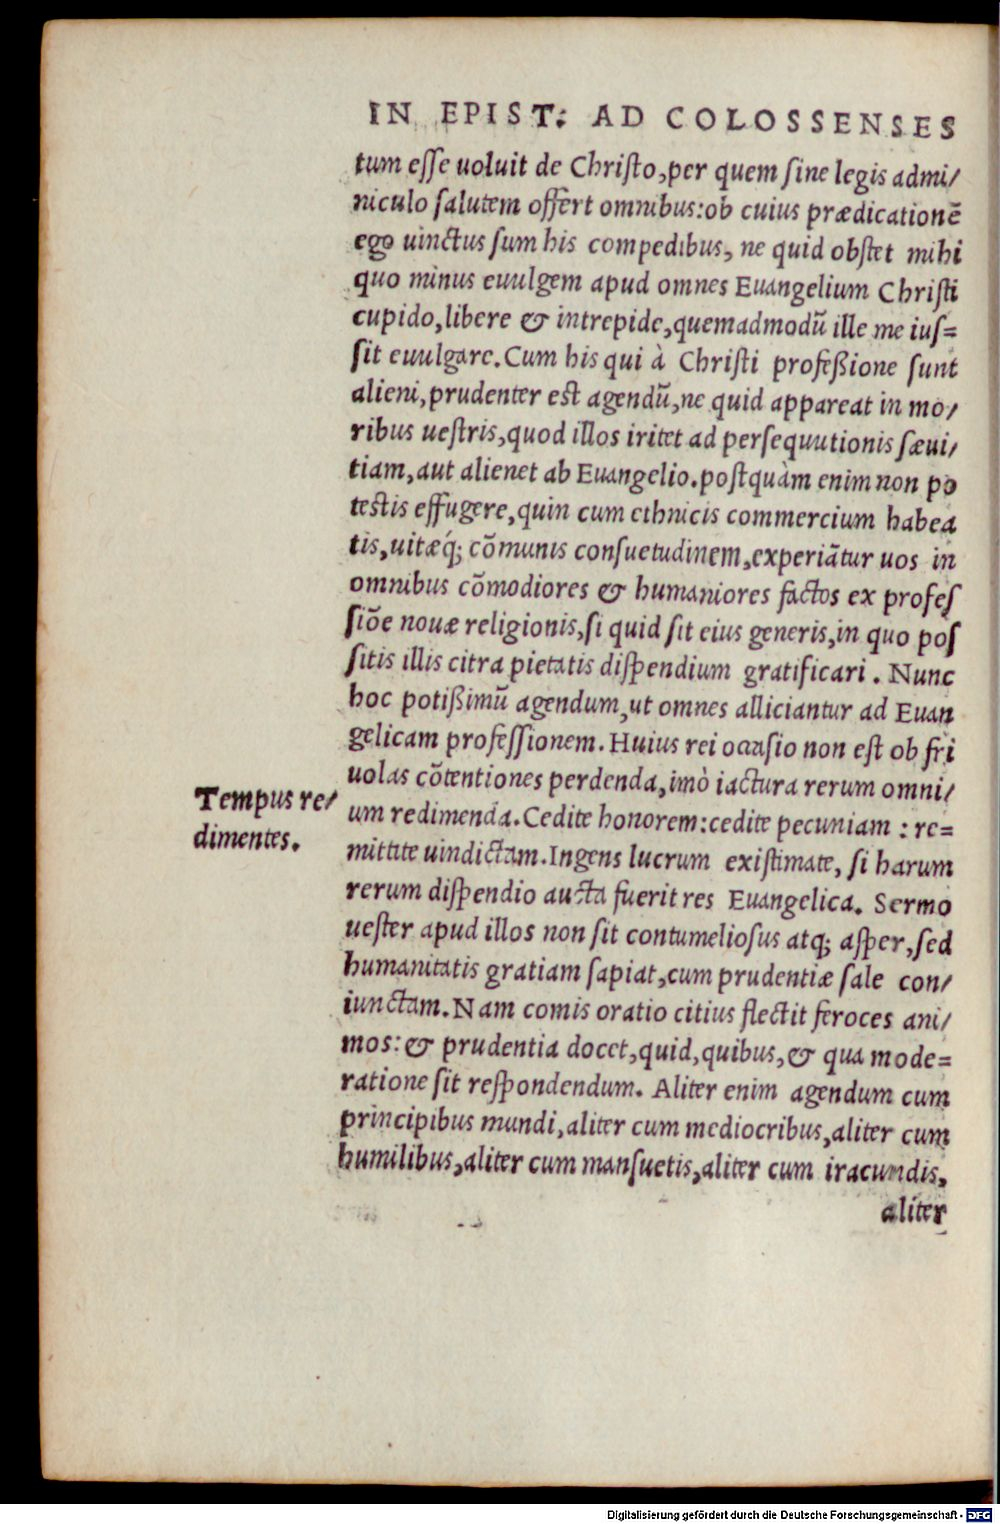 IN EPIST: AD COLOSSENSES
tum eſſe uoluit de Chriſto, per quem ſine legis admi/
niculo ſalutem offert omnibus: ob cuius prædicationē
ego uinctus ſum his compedibus, ne quid obſtet mihi
quo minus euulgem apud omnes Euangelium Chriſti
cupido, libere & intrepide, quemadmodū ille me iuſ=
ſit euulgare. Cum his qui à Chriſti profeßione ſunt
alieni, prudenter eſt agendū, ne quid appareat in mo/
ribus ueſtris, quod illos iritet ad perſequutionis ſæui/
tiam, aut alienet ab Euangelio. poſtquàm enim non po
teſtis effugere, quin cum ethnicis commercium habea
tis, uitæq́; cōmunis conſuetudinem, experiātur uos in
omnibus cōmodiores & humaniores factos ex profeſ
ſiōe nouæ religionis, ſi quid ſit eius generis, in quo poſ
ſitis illis citra pietatis diſpendium gratificari. Nunc
hoc potißimū agendum, ut omnes alliciantur ad Euan
gelicam profeſſionem. Huius rei occaſio non eſt ob fri
uolas cōtentiones perdenda, imò iactura rerum omni/
Tempus re/
dimentes.
um redimenda. Cedite honorem: cedite pecuniam: re=
mittite uindictam. Ingens lucrum exiſtimate, ſi harum
rerum diſpendio aucta fuerit res Euangelica. Sermo
ueſter apud illos non ſit contumelioſus atq; aſper, ſed
humanitatis gratiam ſapiat, cum prudentiæ ſale con/
iunctam. Nam comis oratio citius flectit feroces ani/
mos: & prudentia docet, quid, quibus, & qua mode=
ratione ſit reſpondendum. Aliter enim agendum cum
principibus mundi, aliter cum mediocribus, aliter cum
humilibus, aliter cum manſuetis, aliter cum iracundis,
aliter
Digitalisierung gefördert durch die Deutsche Forschungsgemeinschaft - DFG